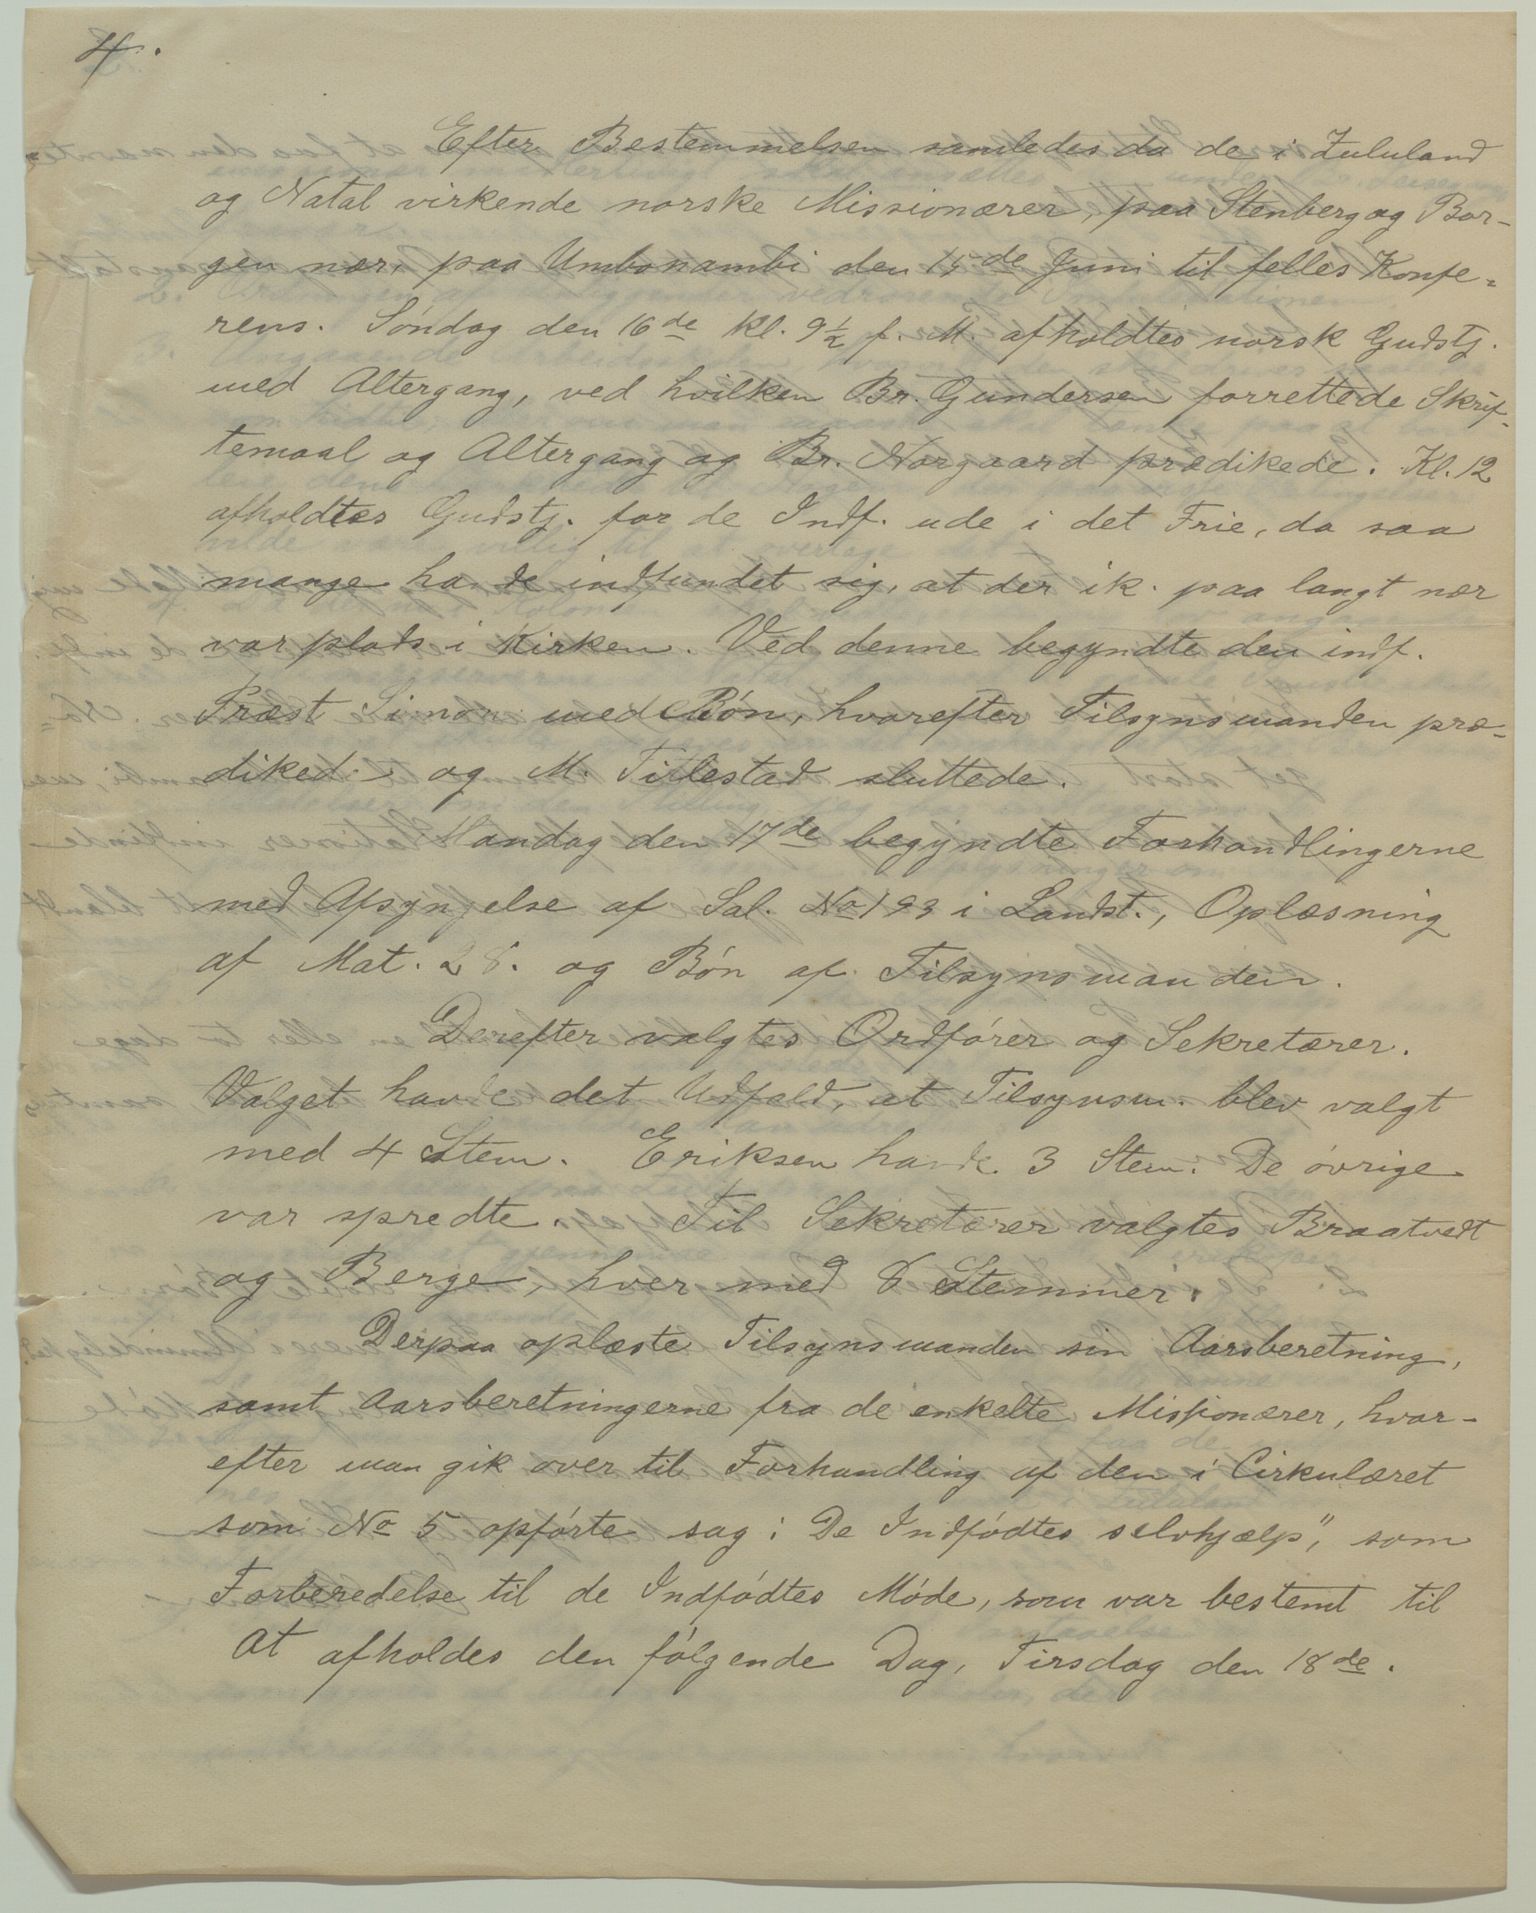 4.
Efter Bestemmelsen samledes da de i Zululand
og Natal virkende norske Missionærer, paa Stenberg og Bor-
gen nær, paa Umbonambi den 15de Juni til felles Konfe-
rens. Søndag den 16de kl. 9½ f. M. afholdtes norsk Gudstj.
med Altergang, ved hvilken Br. Gundersen forrettede Skrif-
temaal og Altergang og Br. Norgaard prædikede. Kl. 12
afholdtes Gudstj. for de Indf. ude i det Frie, da saa
mange havde indfundet sig, at der ik. paa langt nær
var plads i Kirken. Ved denne begyndte den indf.
Præst Simon med Bøn, hvorefter Tilsynsmanden præ-
diked og M. Titlestad sluttede.
Mandag den 17de begyndte Forhandlingerne
med Afsyngelse af Sal. No 193 i Landst., Oplæsning
af Mat. 28. og Bøn af Tilsynsmanden.
Derefter valgtes Ordfører og Sekretærer.
Valget havde det Udfald, at Tilsynsm. blev valgt
med 4 Stem. Eriksen havde 3 Stem. De øvrige
var spredte. Til Sekretærer valgtes Braatvedt
og Berge, hver med 8 Stemmer.
Derpaa oplæste Tilsynsmanden sin Aarsberetning,
samt Aarsberetningerne fra de enkelte Missionærer, hvor-
efter man gik over til Forhandling af den i Cirkulæret
som No 5 opførte sag: De Indfødtes selvhjælp", som
Forberedelse til de Indfødtes Møde, som var bestemt til
At afholdes den følgende Dag, Tirsdag den 18de.